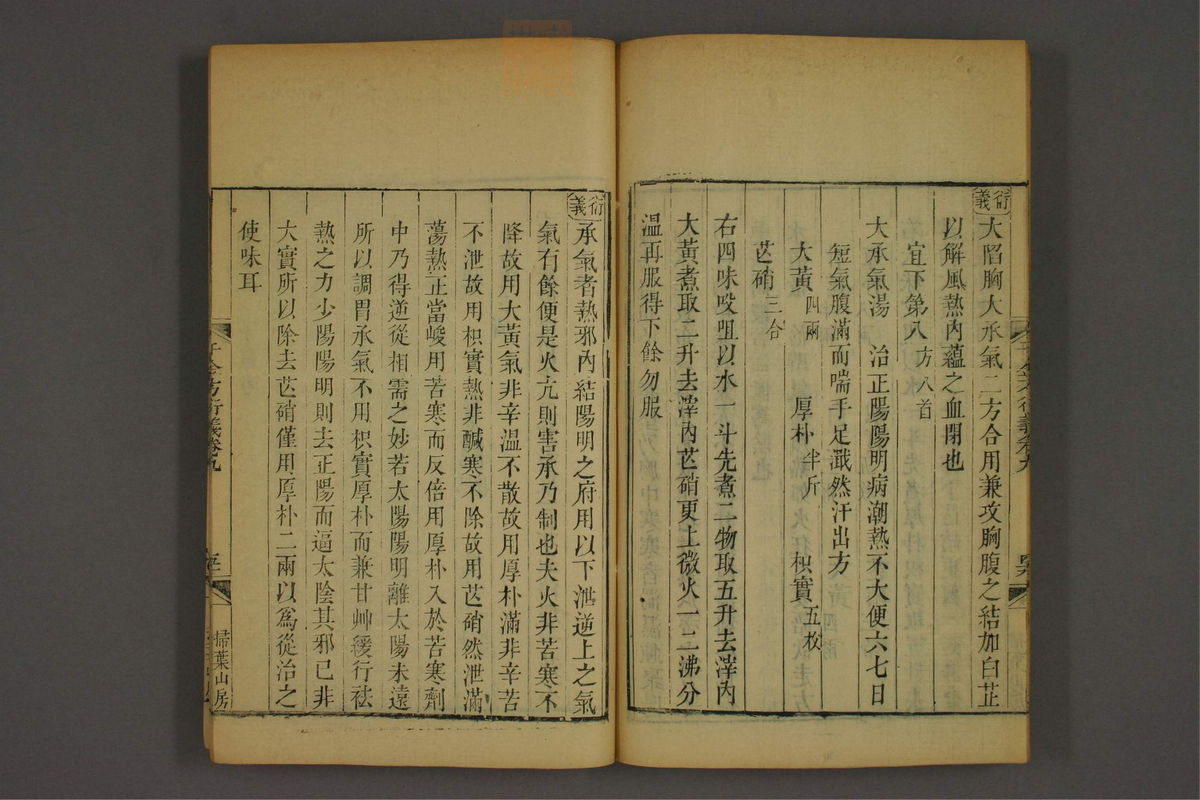 衍義
大陷胸大承氣二方合用兼攻胸腹之結加白芷
以解風熱內蘊之血閉也
宜下第八 方八首
大承氣湯 治正陽陽明病潮熱不大便六七日
短氣腹滿而喘手足濈然汗出方
大黃四兩 厚朴半斤 枳實五枚
芒硝三合
右四味㕮咀以水一斗先煮二物取五升去滓內
大黃煮取二升去滓內芒硝更上微火一二沸分
溫再服得下餘勿服
衍義
承氣者熱邪內結陽明之府用以下泄逆上之氣
氣有餘便是火亢則害承乃制也夫火非苦寒不
降故用大黃氣非辛溫不散故用厚朴滿非辛苦
不泄故用枳實熱非鹹寒不除故用芒硝然泄滿
蕩熱正當峻用苦寒而反倍用厚朴入於苦寒劑
中乃得逆從相需之妙若太陽陽明離太陽未遠
所以調胃承氣不用枳實厚朴而兼甘艸緩行祛
熱之力少陽陽明則去正陽而逼太陰其邪已非
大實所以除去芒硝僅用厚朴二兩以爲從治之
使味耳
千金方衍義卷九
掃葉山房